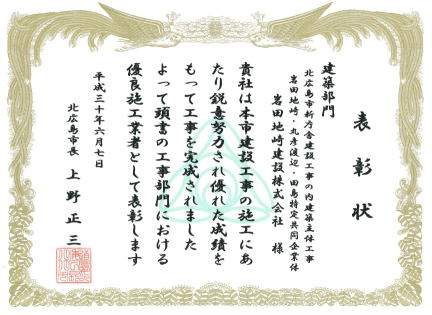 表彰状
建築部門
北広島市新庁舎建設工事の内建築主体工事
岩田地崎・丸彦渡辺・田島特定共同企業体
岩田地崎建設株式会社 様
貴社は本市建設工事の施工にあ
たり鋭意努力され優れた成績を
もって工事を完成されました
よって頭書の工事部門における
優良施工業者として表彰します
平成三十年六月七日
北広島市長 上野正三